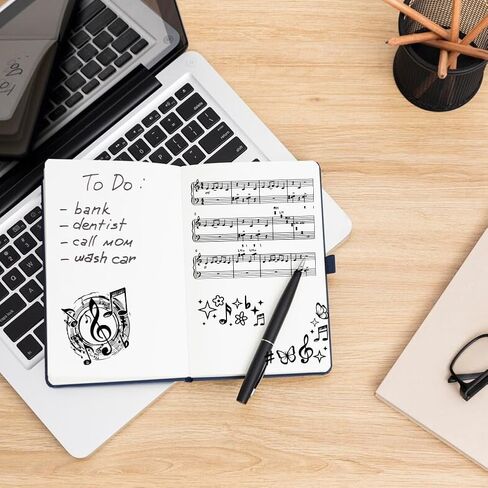 To Do:
- bank
- dentist
- call MOM
- wash car